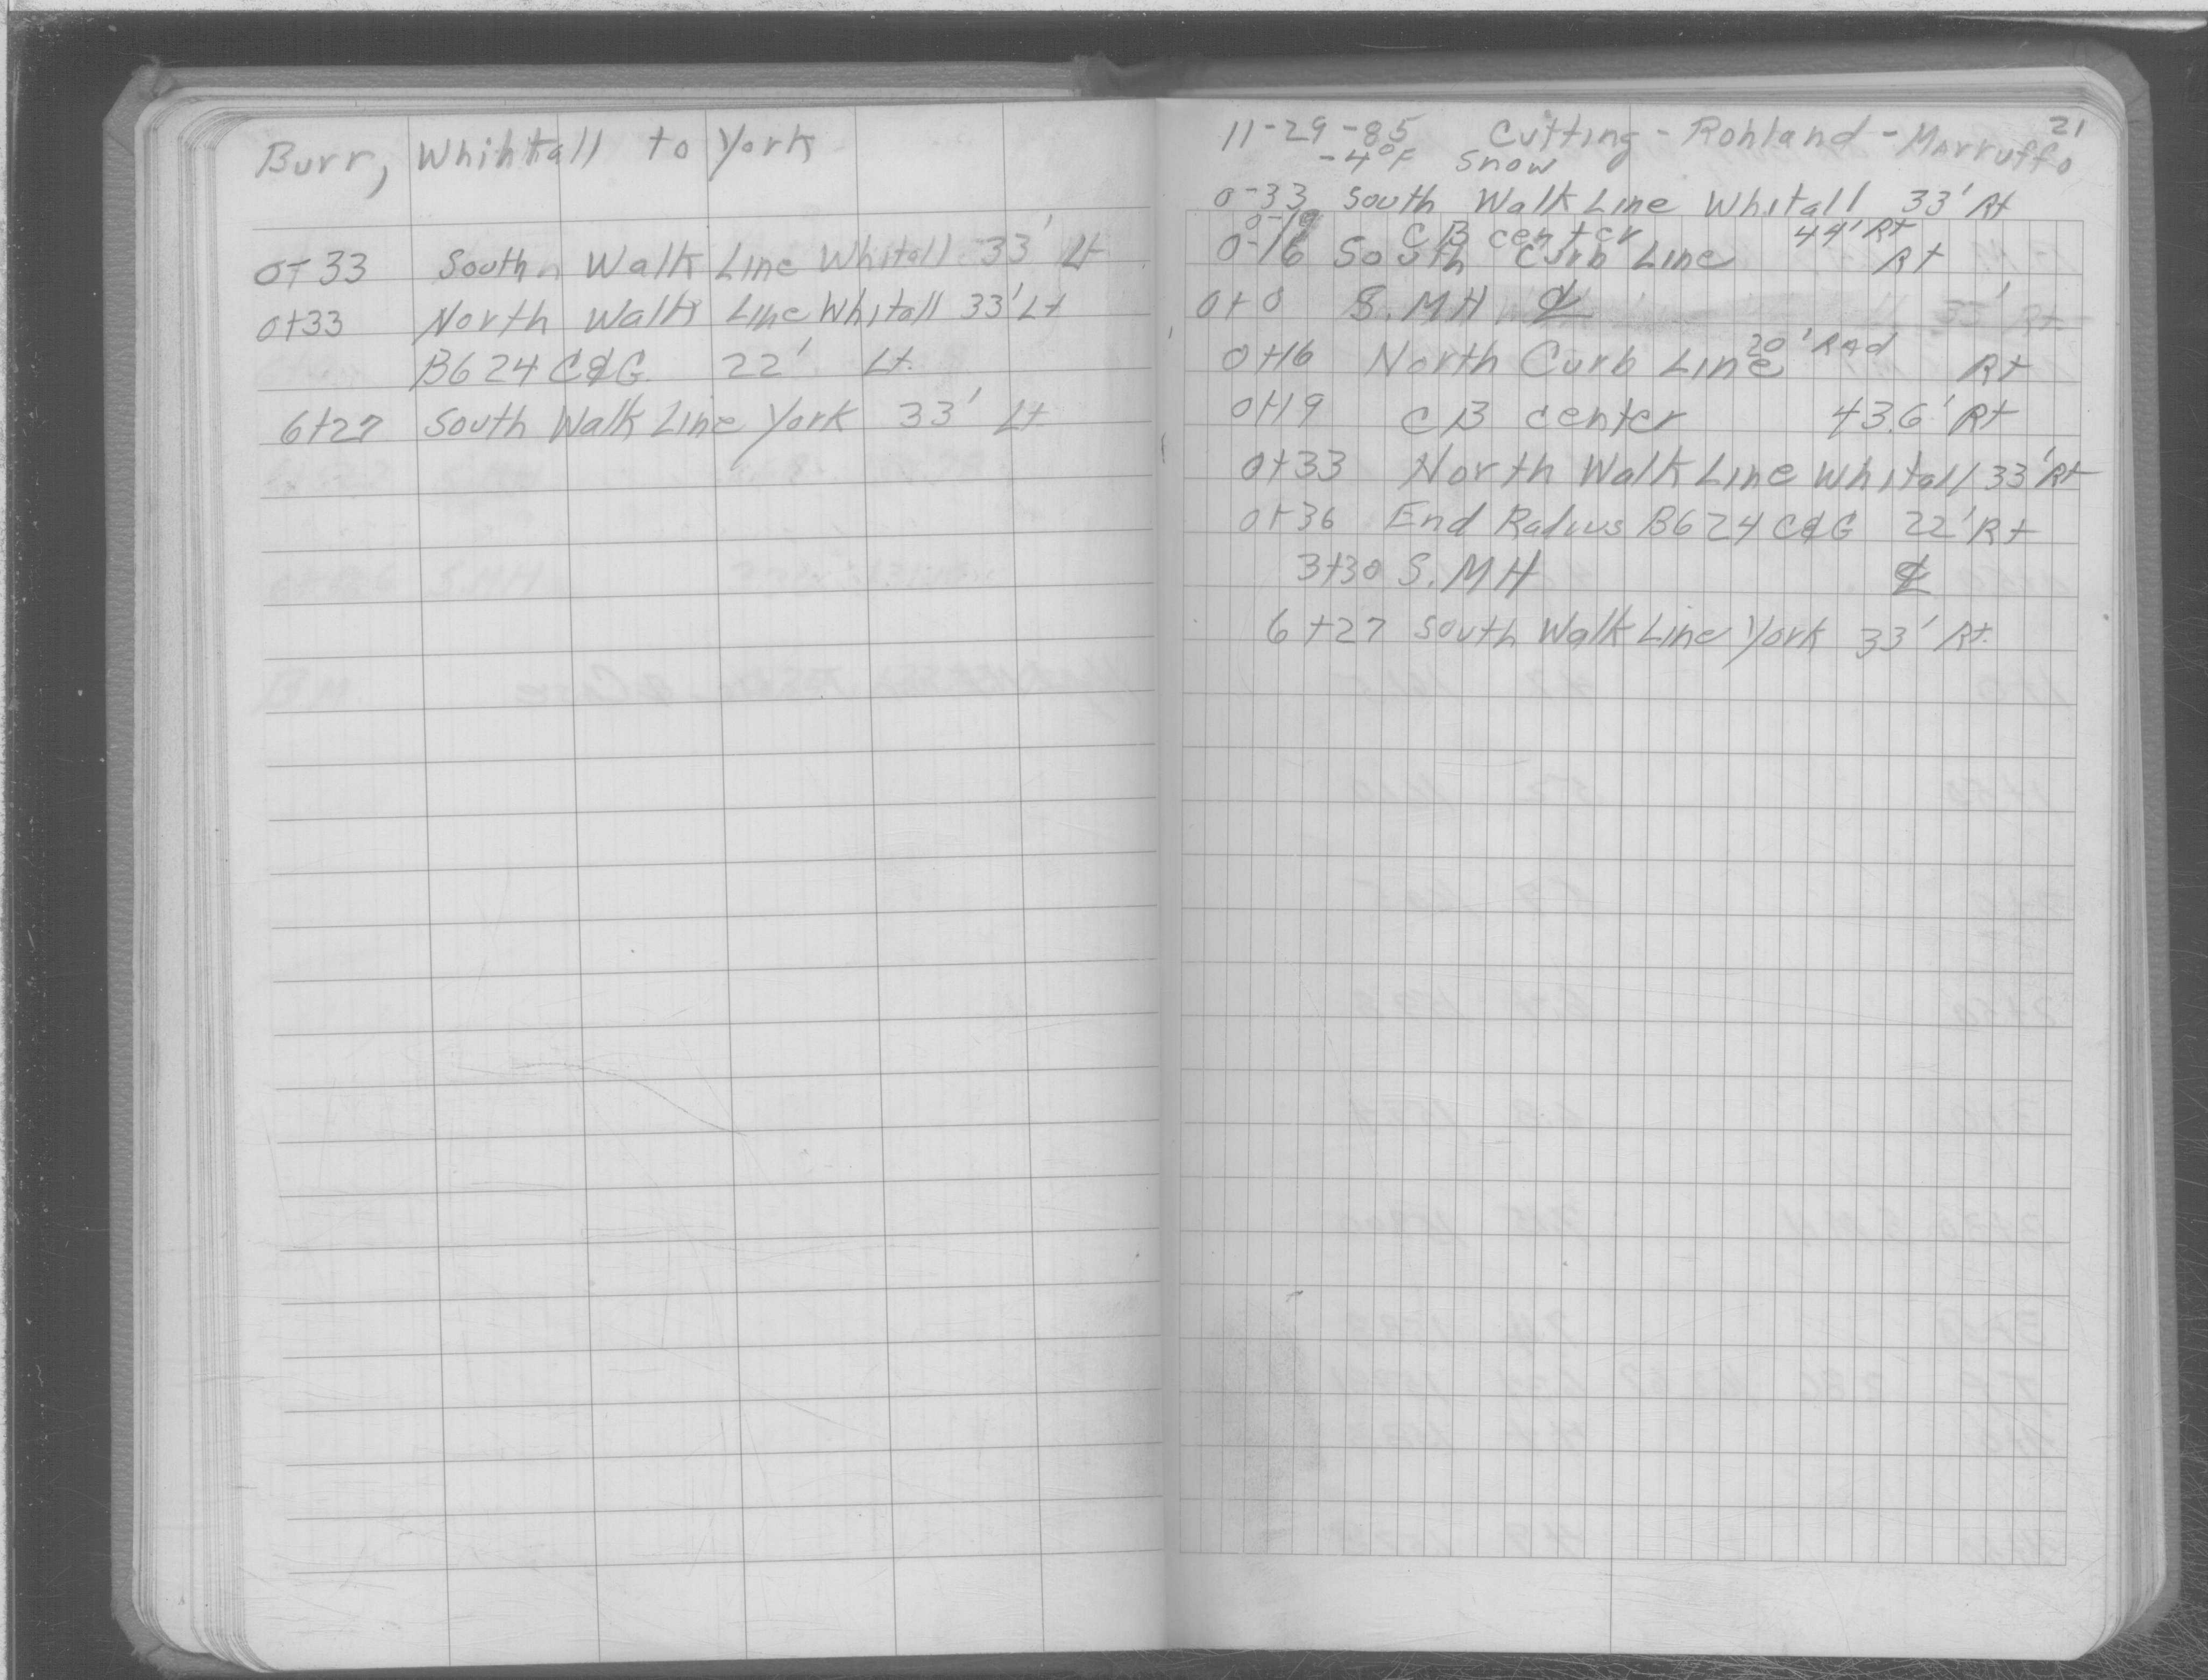 Burr, Whihtall to York
0-33 South Walk Line Whitall 33' Lt
0+33 North Walk Line Whitall 33' Lt
B624 C&G 22' Lt.
6+27 South Walk Line York 33' Lt
21
11-29-85 Cutting - Rohland - Marruffo
-4°F Snow
0-33 South Walk Line Whitall 33' Rt
0-19 CB center 44' Rt
0-16 South Curb Line Rt
0+0 S.MH ℄
0+16 North Curb Line 20' Rad Rt
0+19 CB center 43.6' Rt
0+33 North Walk Line Whitall 33' Rt
0+36 End Radius B624 C&G 22' Rt
3+30 S.MH ℄
6+27 South Walk Line York 33' Rt.